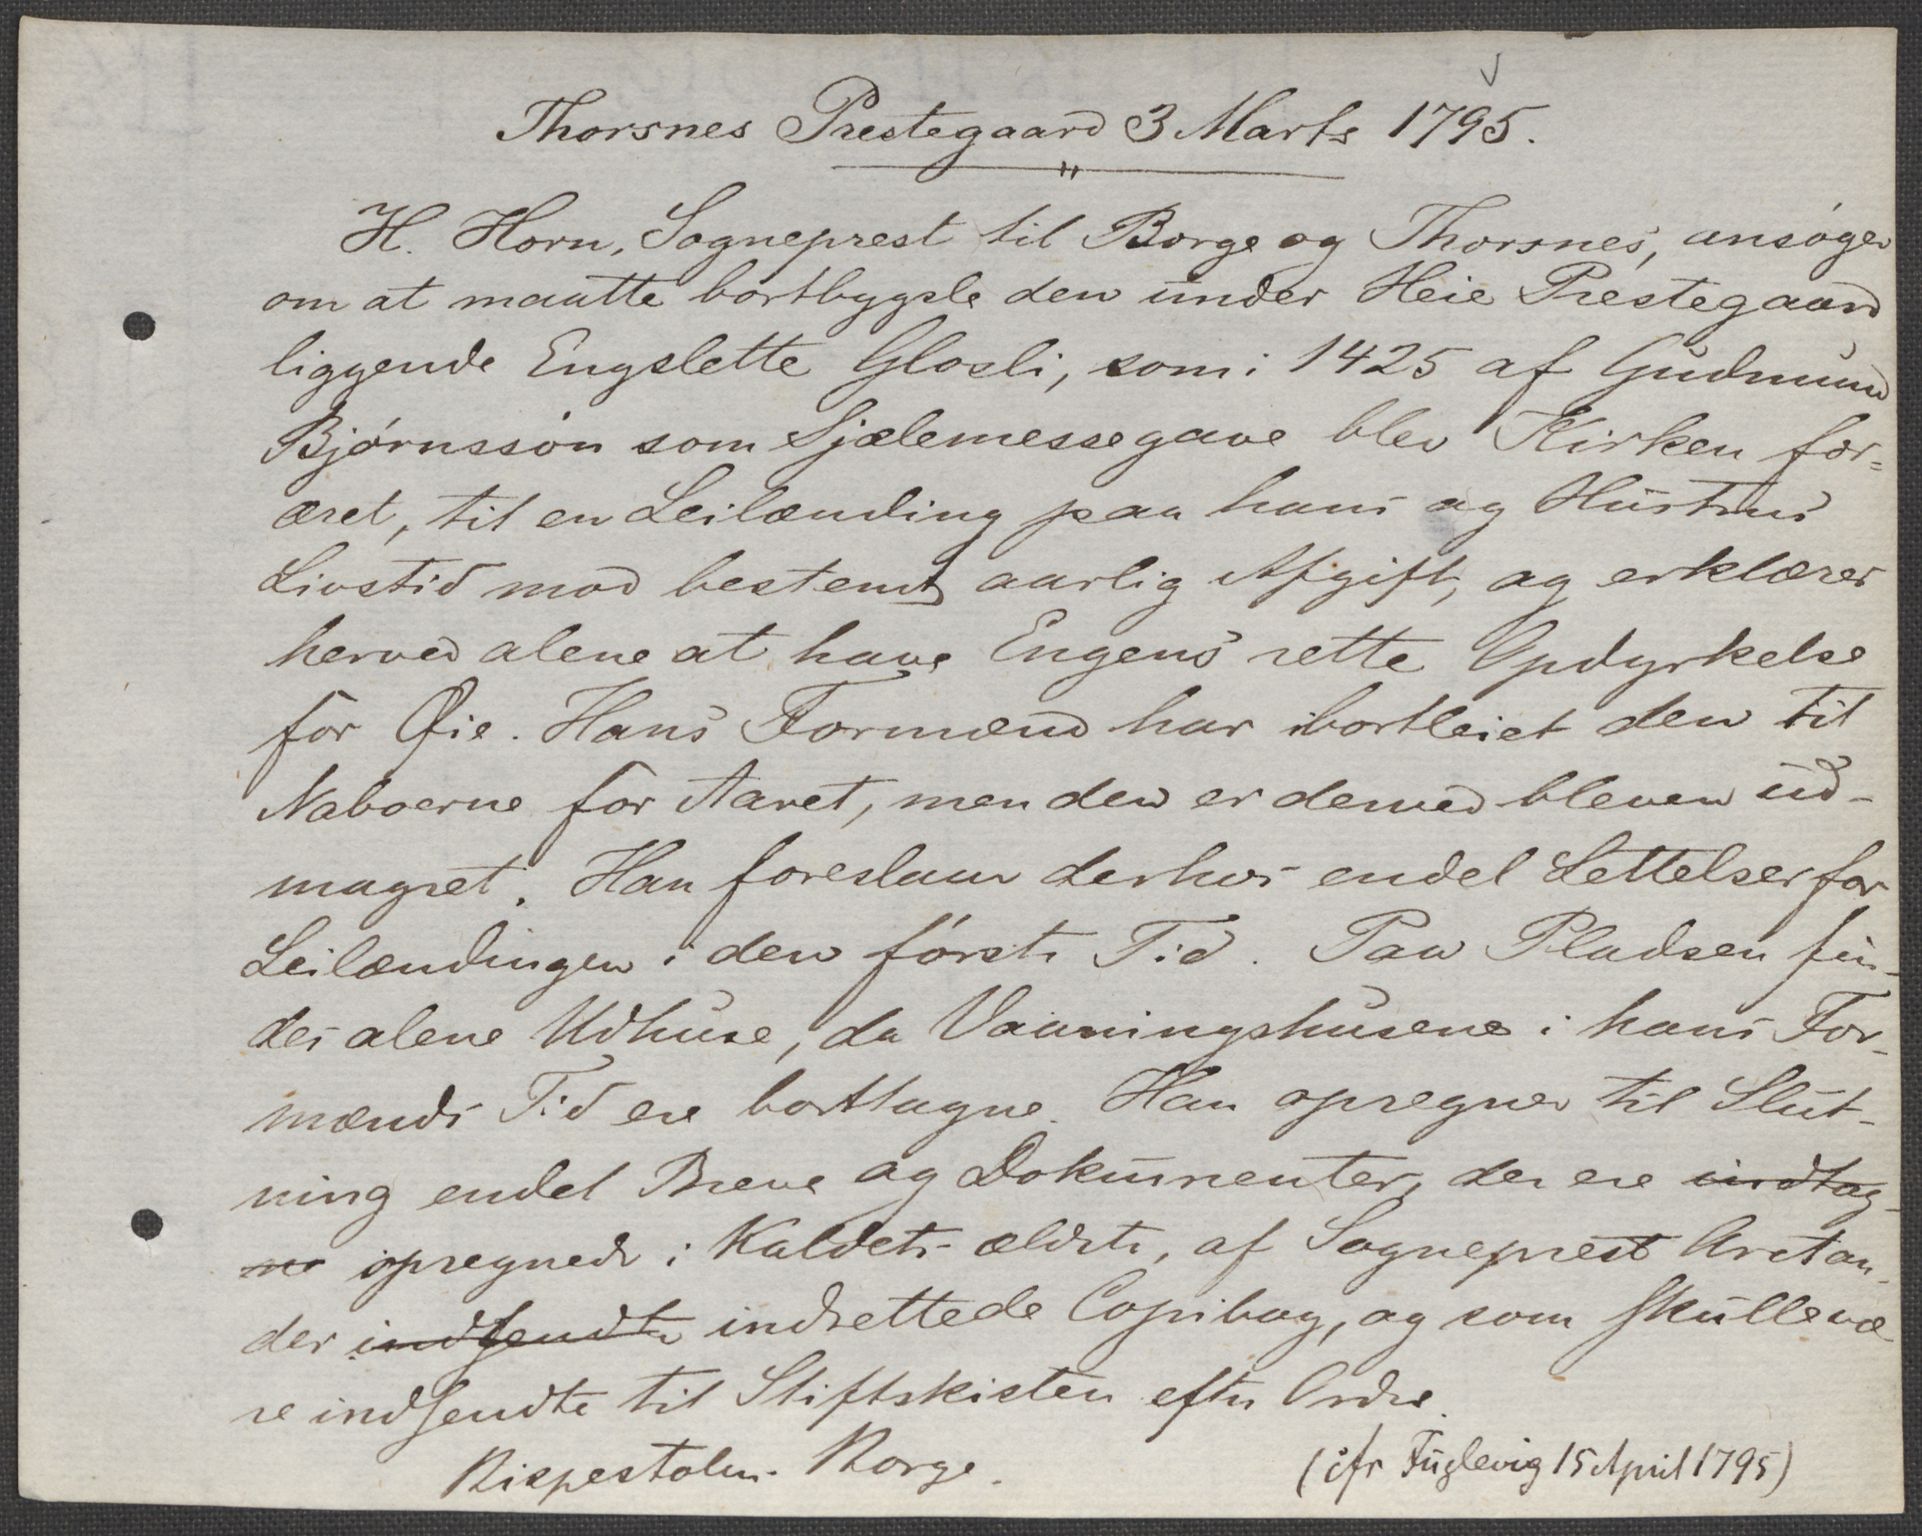 Thorsnes Prestegaard 3 Marts 1795.
H. Horn, Sogneprest til Borge og Thorsnes, ansøger
om at maatte bortbygsle den under Heie Prestegaard
liggende Engslette Glosli, som i 1425 af Gudmund
Bjørnssøn som Sjælemessegave blev Kirken for=
æret, til en Leilænding paa hans og Hustrus
Livstid mod bestemt aarlig Afgift, og erklærer
herved alene at have Engens rette Opdyrkelse
for Øie. Hans Formænd har bortleiet den til
Naboerne for Aaret, men den er derved bleven ud-
magret. Han foreslaar derhos endel Lettelser for
Leilændingen i den første Tid. Paa Pladsen fin-
des alene Udhuse, da Vaaningshusene i hans For-
mænds Tid ere borttagne. Han opregner til Slut-
ning endel Breve og Dokumenter, der ere indtag-
ne opregnede i Kaldets ældste, af Sogneprest Arctan-
der indsendte indrettede Copibog, og som skulle væ-
re indsendte til Stiftskisten efter Ordre.
Bispestolen. Borge.
(jfr Fuglevig 15 April 1795)